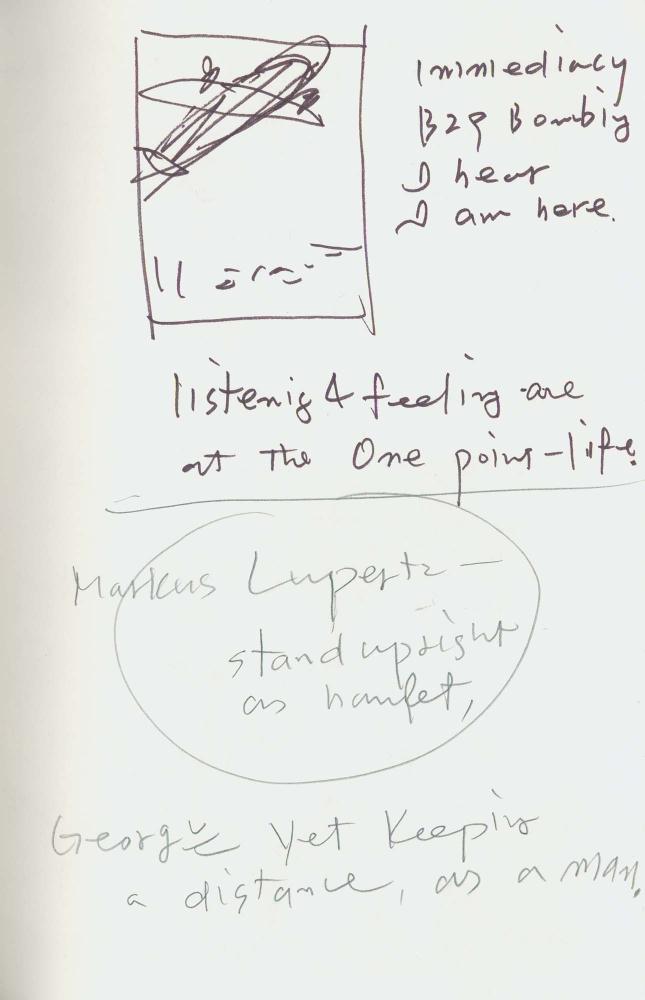 Immediacy
B29 Bombig
I hear
I am here.
listenig & feeling are
at the One point-life.
Markus Lupertz —
stand upright
as hamlet,
George yet keepin
a distance, as a man.